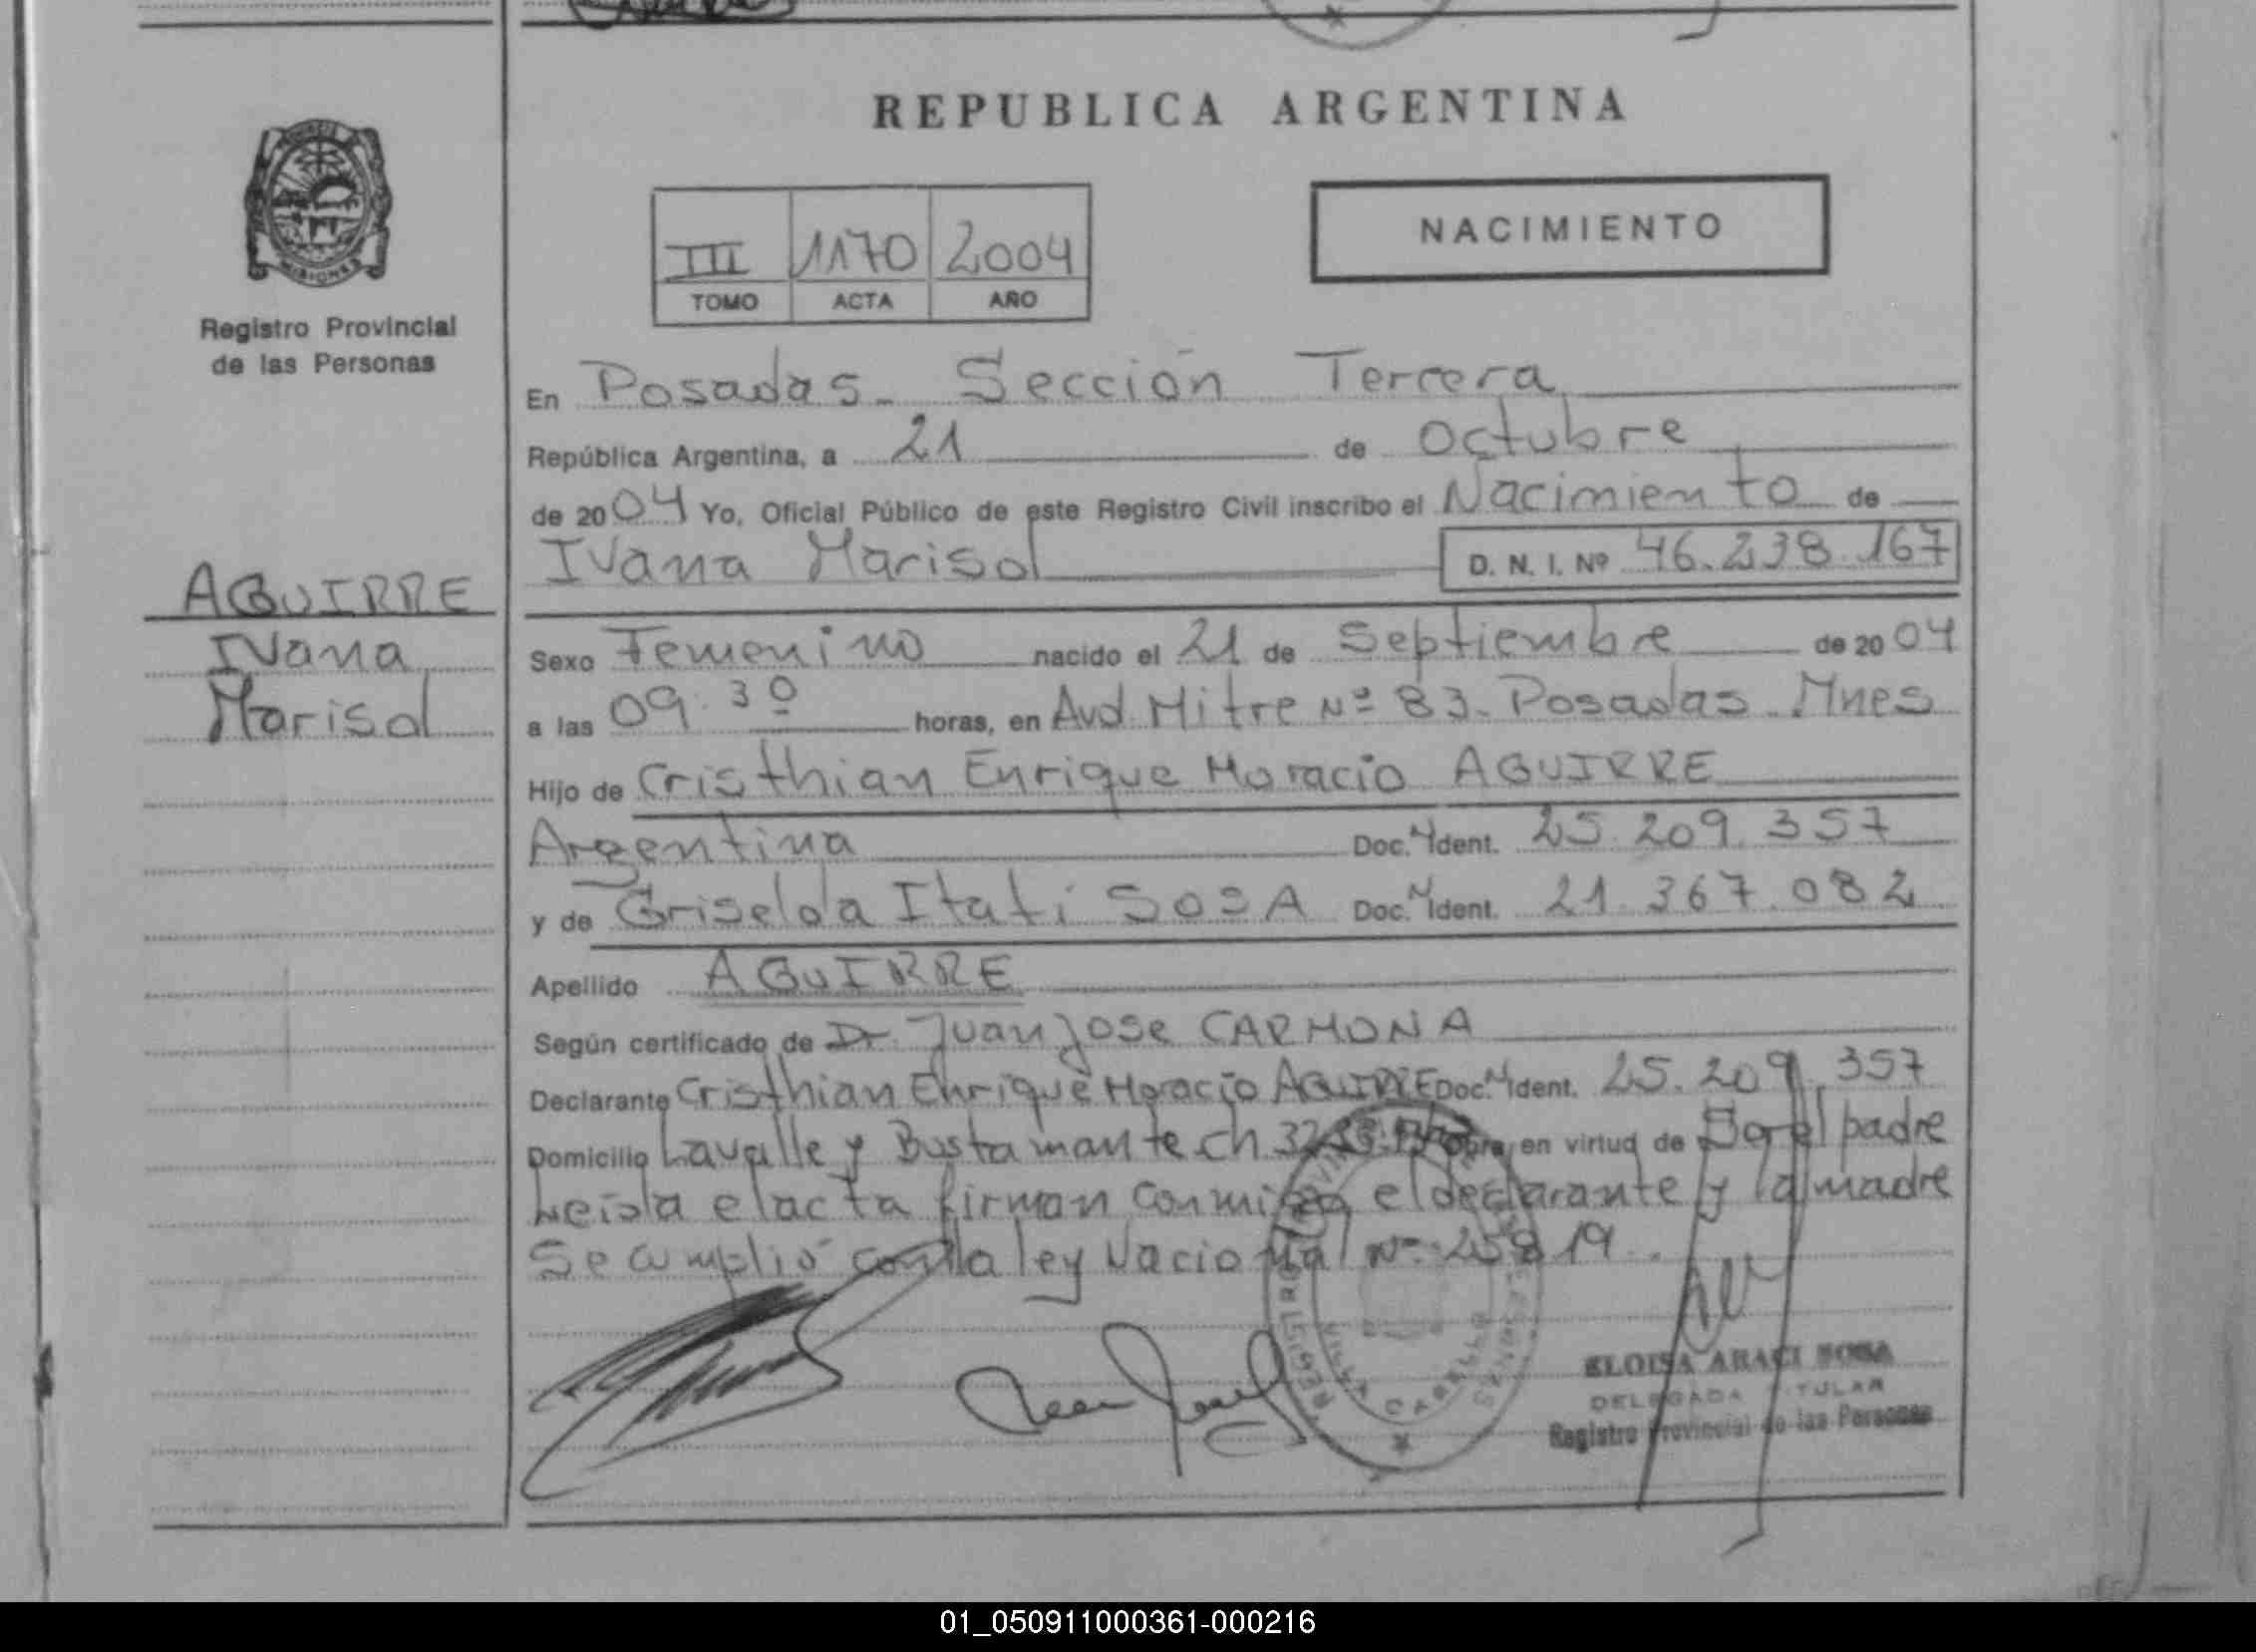 REPUBLICA ARGENTINA
NACIMIENTO
III 1170 2004
TOMO ACTA AÑO
MISIONES
Registro Provincial
de las Personas
En Posadas - Sección Tercera
República Argentina, a 21 de Octubre
de 2004 Yo, Oficial Público de este Registro Civil inscribo el Nacimiento de
Ivana Marisol D. N. I. Nº 46.238.167
AGUIRRE
Ivana
Marisol
Sexo Femenino nacido el 21 de Septiembre de 2004
a las 09.30 horas, en Avd. Mitre Nº 83 - Posadas - Mnes
Hijo de Cristhian Enrique Horacio AGUIRRE
Argentina Doc. N Ident. 25.209.357
y de Griselda Itati SOSA Doc. N Ident. 21.367.082
Apellido AGUIRRE
Según certificado de Dr. Juan Jose CARMONA
Declarante Cristhian Enrique Horacio AGUIRRE Doc. N Ident. 25.209.357
Domicilio Lavalle y Bustamante ch 32 Obra en virtud de Ser el padre
Leida el acta firman conmigo el declarante y la madre
Se cumplió con la ley Nacional Nº
VILLA CABELLO
ELOISA ARACI SOSA
DELEGADA TITULAR
Registro Provincial de las Personas
01_050911000361-000216